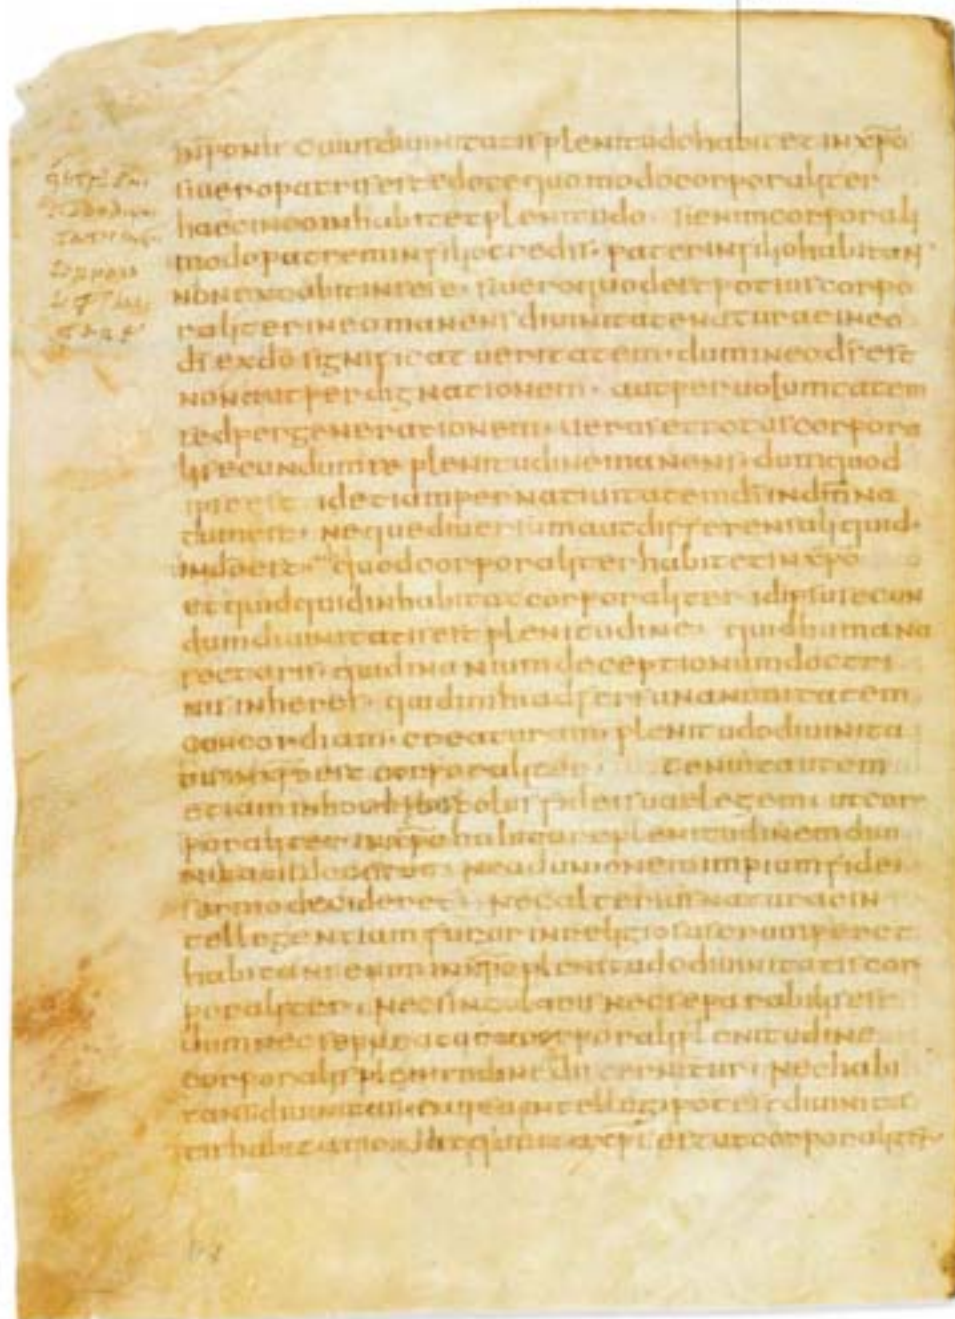 inponit cuius diuinitatis plenitudo habitet in xpo
si uero patris est edoce quomodo corporaliter
haec in eo inhabitet plenitudo si enim corporali
modo patrem in filio credis pater in filio habitans
non extabit in sese si uero quod est potius corpo
raliter in eo manens diuinitate naturae in eo
di ex do significat ueritatem dum in eo ds est
non aut per dignationem aut per uolumtatem
sed per generationem uerus et totus corpora
li secundum se plenitudine manens dum quod
ipse est id etiam per natiuitatem di in dm na
tum est neque diuersum aut differens aliquid
in do est quod corporaliter habitet in xpo
et quidquid inhabitat corporaliter id ipsut secun
dum diuinitatis est plenitudine quid humana
sectaris quid inanium deceptionum doctri
nis inheres quid mihi adfers unanimitatem
concordiam creaturam plenitudo diuinita
tis in xpo est corporaliter tenuit autem
etiam in hoc apostolus fidei suae legem ut cor
poraliter in xpo habitare plenitudinem diui
nitatis doceret ne ad unionem impiam fidei
sermo decideret nec alterius naturae in
tellegentiam furor inreligiosus erumperet
habitans enim in xpo plenitudo diuinitatis cor
poraliter nec singularis nec separabilis est
dum nec separari se a corporalis plenitudine
corporalis plenitudine discernitur nec habi
tans diuinitas ipsa intellegi potest diuinita
tis habitatio